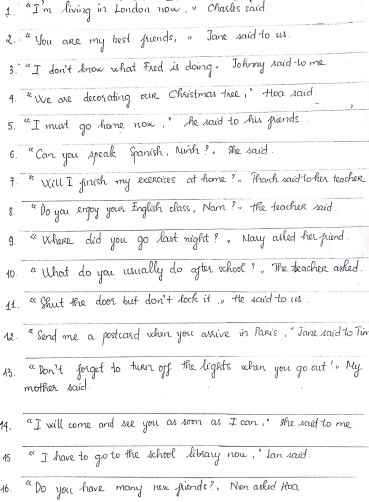 1. "I'm living in London now," Charles said
2. "You are my best friends," Jane said to us.
3. "I don't know what Fred is doing. Johnny said to me
4. "We are decorating our Christmas tree," Hoa said
5. "I must go home now," he said to his friends
6. "Can you speak Spanish, Ninh?" She said.
7. "Will I finish my exercises at home?" Thanh said to her teacher
8 "Do you enjoy your English class, Nam?" the teacher said
9. "Where did you go last night?" Mary asked her friend.
10. "What do you usually do after school?" The teacher asked.
11. "Shut the door but don't lock it." He said to us.
12. "Send me a postcard when you arrive in Paris," Jane said to Tim
13. "Don't forget to turn off the lights when you go out". My
mother said
14. "I will come and see you as soon as I can," She said to me
15 "I have to go to the school library now," Ian said.
16. "Do you have many new friends?" Nen asked Hoa